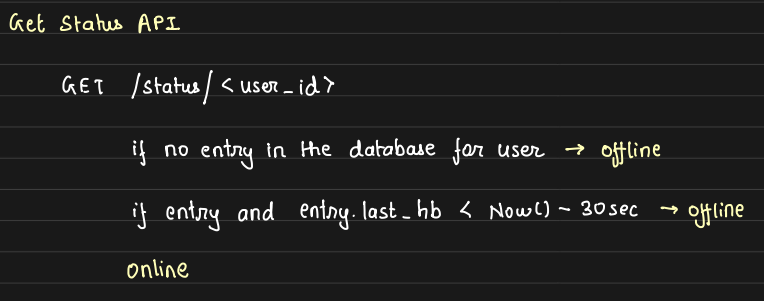 Get Status API
GET /status/<user_id>
if no entry in the database for user → offline
if entry and entry.last_hb < Now() - 30sec → offline
online